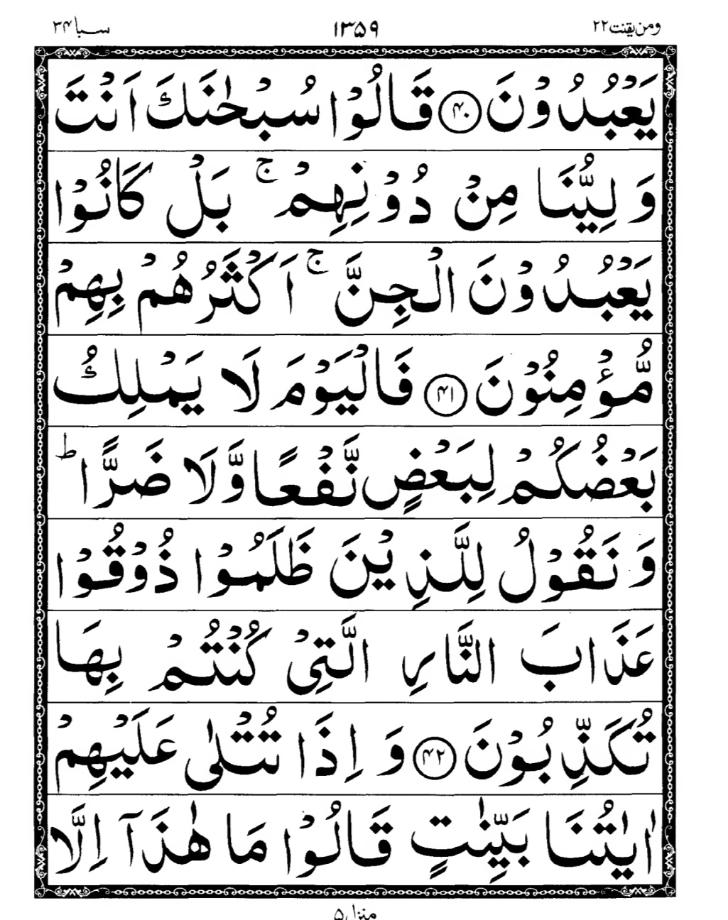 ومن یقنت ۲۲ ۱۳۵۹ سبا ۳۴
يَعْبُدُوْنَ ﴿۴۰﴾ قَالُوْا سُبْحٰنَكَ اَنْتَ
وَلِيُّنَا مِنْ دُوْنِهِمْ ۚ بَلْ كَانُوْا
يَعْبُدُوْنَ الْجِنَّ ۚ اَكْثَرُهُمْ بِهِمْ
مُّؤْمِنُوْنَ ﴿۴۱﴾ فَالْيَوْمَ لَا يَمْلِكُ
بَعْضُكُمْ لِبَعْضٍ نَّفْعًا وَّلَا ضَرًّا ؕ
وَ نَقُوْلُ لِلَّذِيْنَ ظَلَمُوْا ذُوْقُوْا
عَذَابَ النَّارِ الَّتِيْ كُنْتُمْ بِهَا
تُكَذِّبُوْنَ ﴿۴۲﴾ وَ اِذَا تُتْلٰى عَلَيْهِمْ
اٰيٰتُنَا بَيِّنٰتٍ قَالُوْا مَا هٰذَاۤ اِلَّا
منزل ۵